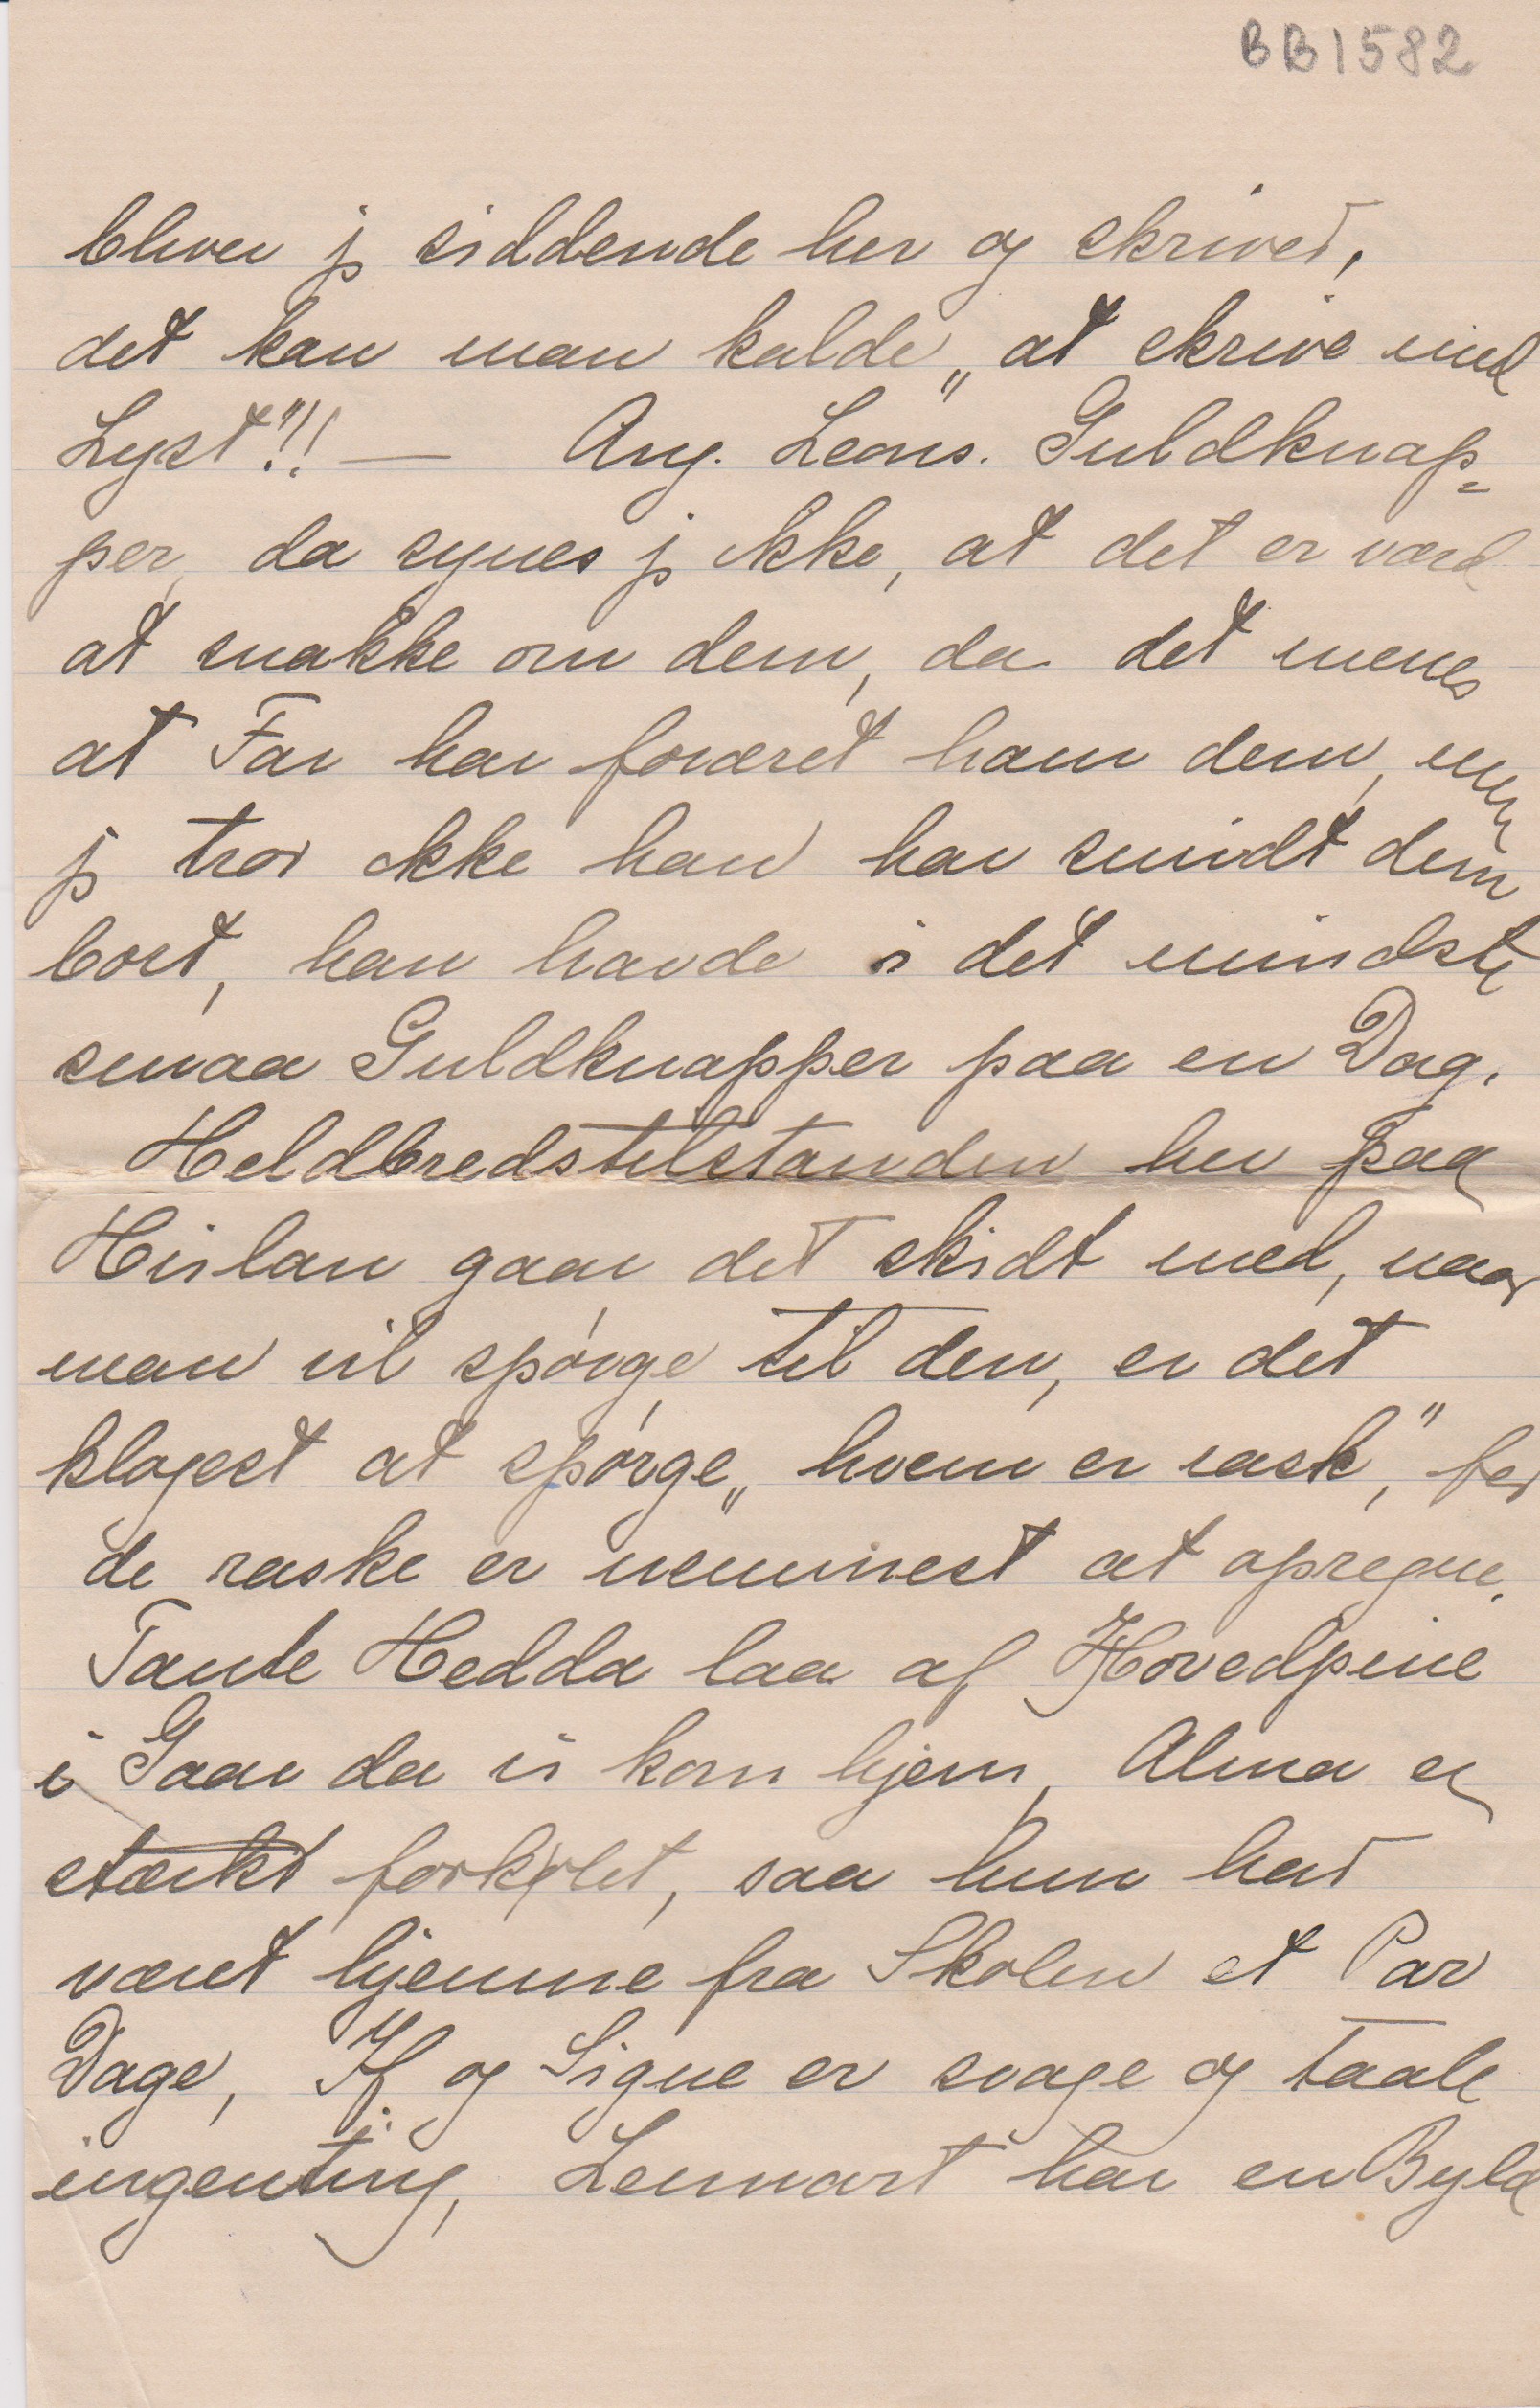 BB1582
bliver jg siddende her og skriver,
det kan man kalde „at skrive med
Lyst"!! — Ang. Leons. Guldknap=
per, da synes jg ikke, at det er værd
at snakke om dem, da det menes
at Far har foræret ham dem, men
jg tror ikke han har smidt dem
bort, han havde i det mindste
smaa Guldknapper paa en Dag.
Heldbredstilstanden her paa
gaar det skidt med, naar
man vil spørge til den, er det
klogest at spørge „hvem er rask", for
de raske er nemmest at opregne.
Tante Hedda laa af Hovedpine
i Gaar da vi kom hjem, Alma er
stærkt forkølet, saa hun har
været hjemme fra Skolen et Par
Dage, If og Signe er svage og taale
ingenting, Lennart har en Byld